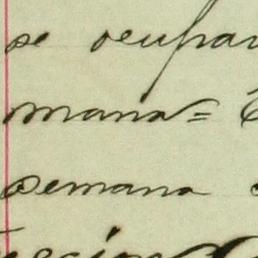 se ocupar
mana=
semana